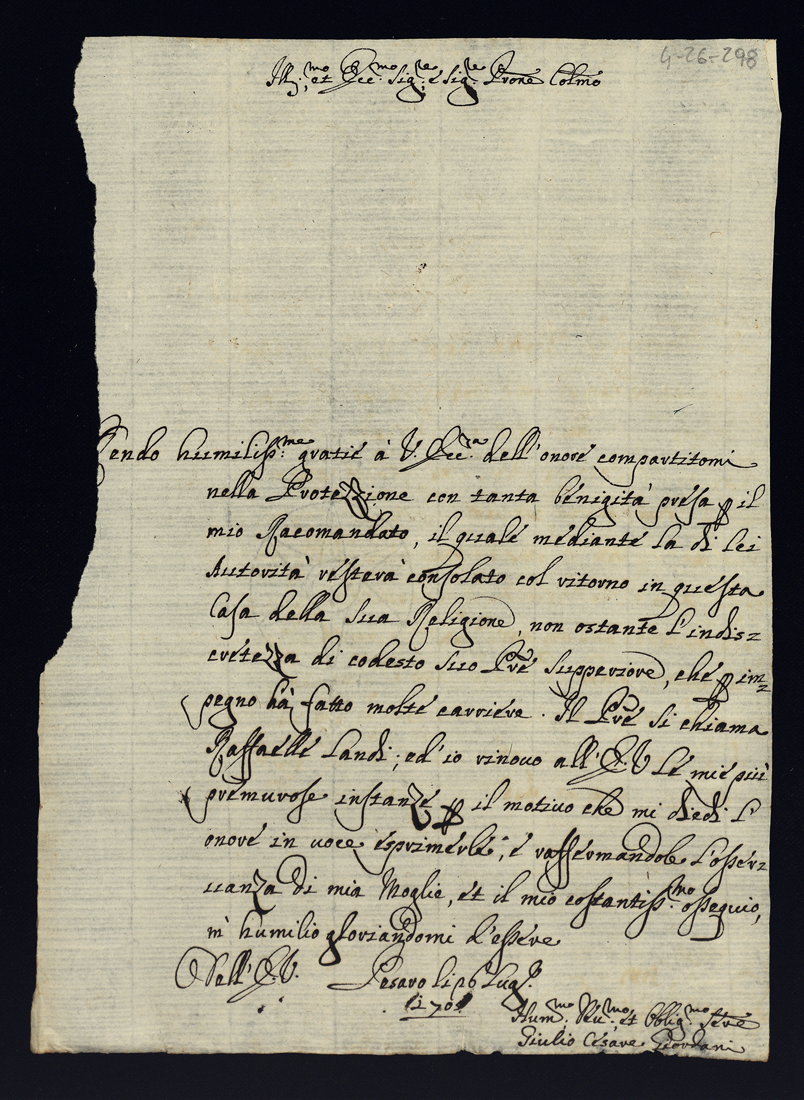 4-26-298
Ill.mo et Ecc.mo Sig.re e Sig.re Prone Colmo
Rendo humiliss.me gratie à V. Ecc.za dell'onore compartitomi
nella Protezzione con tanta benigità presa p il
mio Racomandato, il quale mediante la di lei
Autorità resterà consolato col ritorno in questa
Casa della sua Religione, non ostante l'indis=
cretezza di codesto suo Pre Supperiore, che p im=
pegno hà fatto molte carriere. Il Pre si chiama
Raffaelle Landi; ed'io rinovo all'E.V. le mie più
premurose instanze p il motivo che mi diedi l'
onore in voce esprimerle; e raffermandole l'osser=
uanza di mia Moglie, et il mio costantiss.mo ossequio,
m'humilio gloriandomi d'essere
Dell'E.V. Pesaro li 26 Lug.
Hum.mo Deu.mo et Oblig.mo Sere
Giulio Cesare Giordani